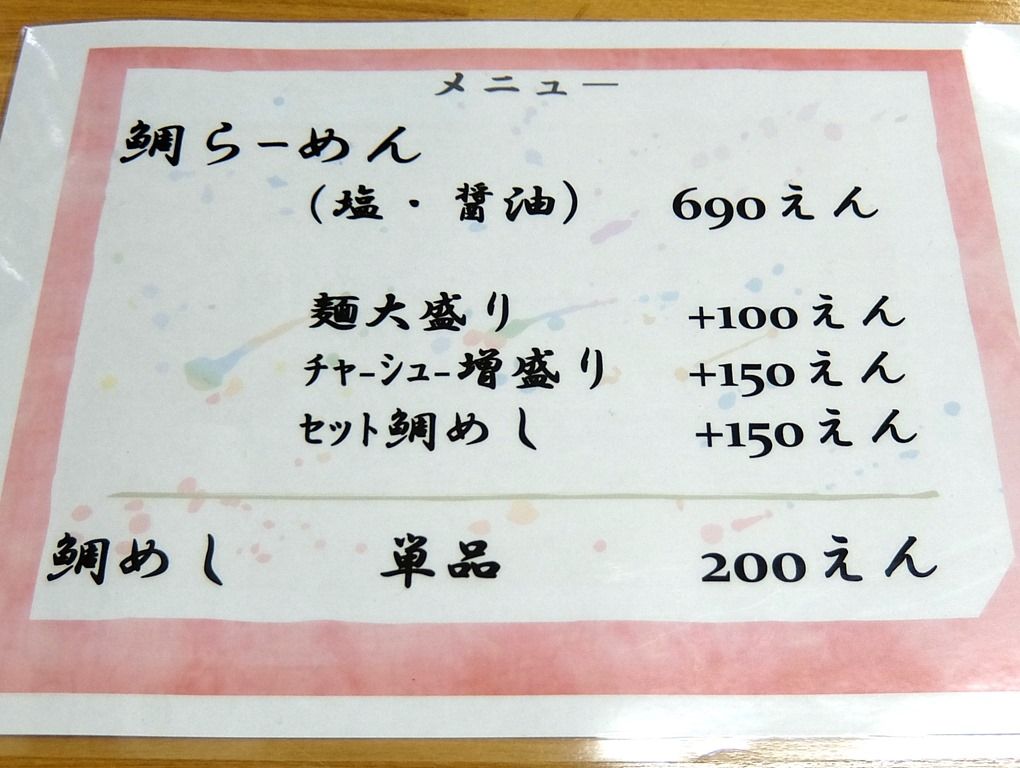 メニュー
鯛らーめん
(塩・醤油) 690えん
麺大盛り +100えん
チャーシュー増盛り +150えん
セット鯛めし +150えん
鯛めし 単品 200えん